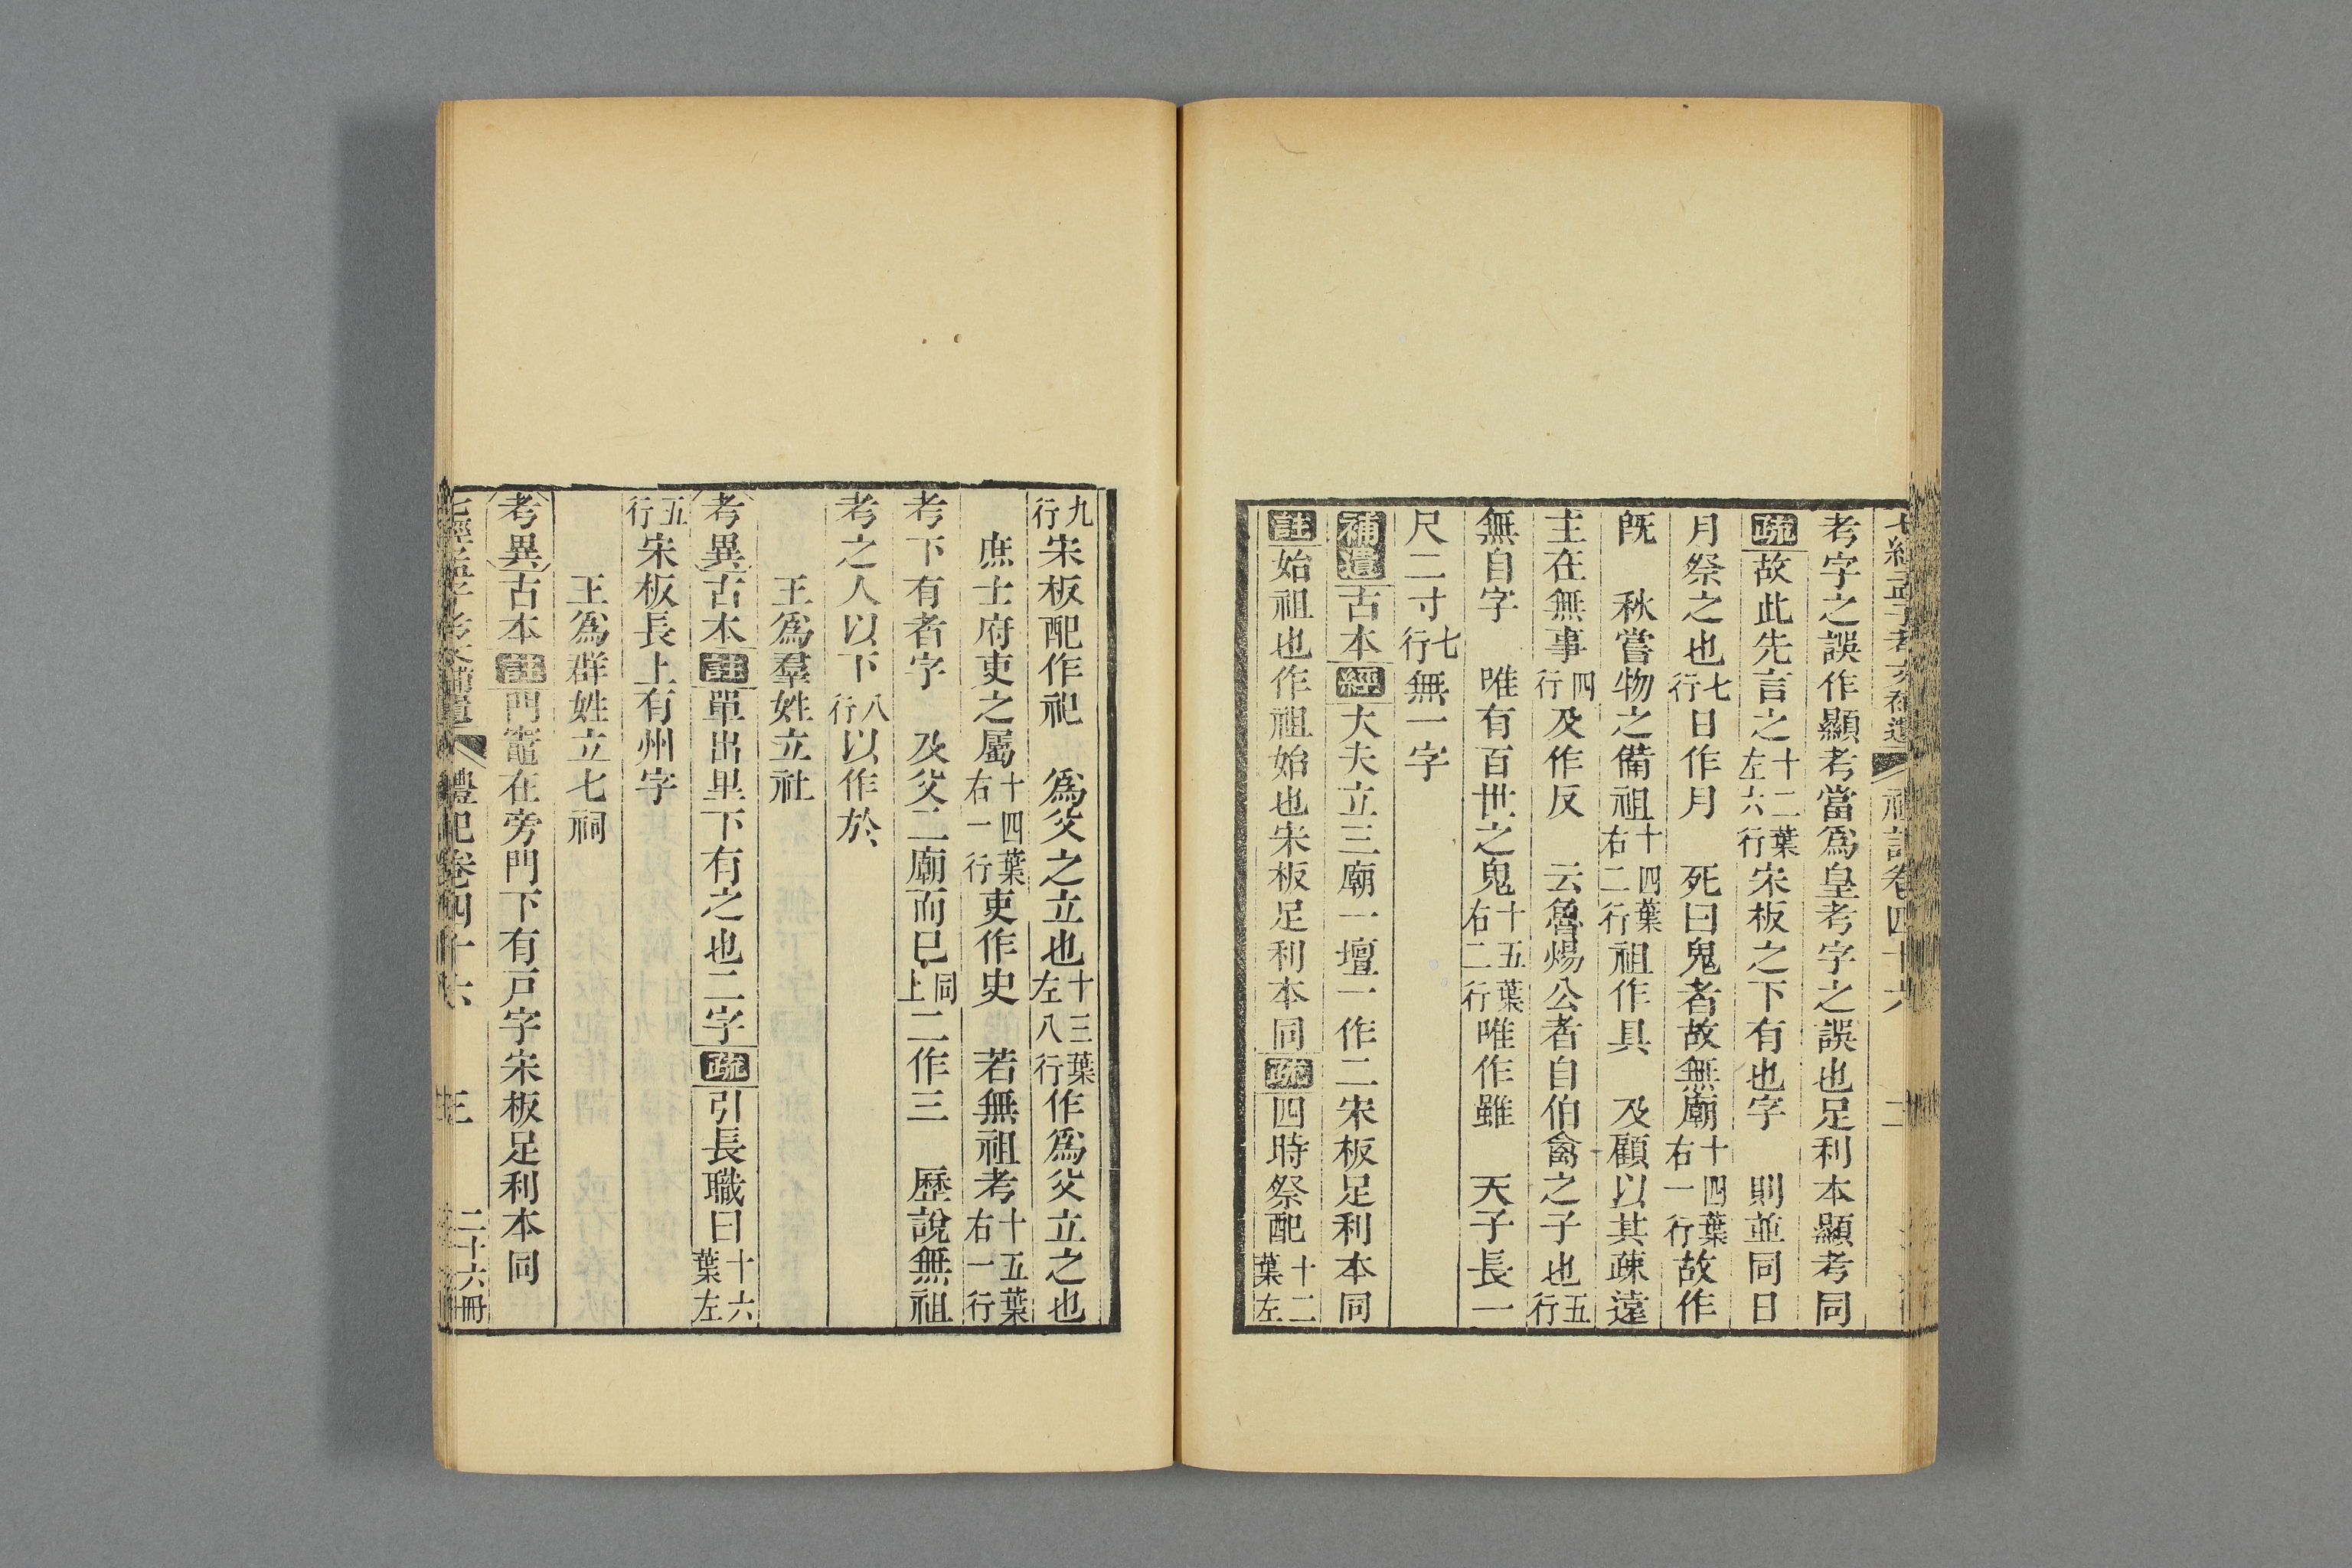 考字之誤作顯考當爲皇考字之誤也足利本顯考同
疏故此先言之十二葉左六行宋板之下有也字　則並同日
月祭之也七行日作月　死曰鬼者故無廟十四葉右一行故作
旣　秋嘗物之備祖十四葉右二行祖作具　及顧以其疎遠
主在無事四行及作反　云魯煬公者自伯禽之子也五行
無自字　唯有百世之鬼十五葉右二行唯作雖　天子長一
尺二寸七行無一字
補遺古本經大夫立三廟一壇一作二宋板足利本同
註始祖也作祖始也宋板足利本同疏四時祭配十二葉左
九行宋板配作祀　爲父之立也十三葉左八行作爲父立之也
庶士府吏之屬十四葉右一行吏作史　若無祖考十五葉右一行
考下有者字　及父二廟而已同上二作三　歷說無祖
考之人以下八行以作於
王爲羣姓立社
考異古本註單出里下有之也二字疏引長職曰十六葉左
五行宋板長上有州字
王爲群姓立七祠
考異古本註門竈在旁門下有戸字宋板足利本同
禮記卷四十六　三　二十六冊